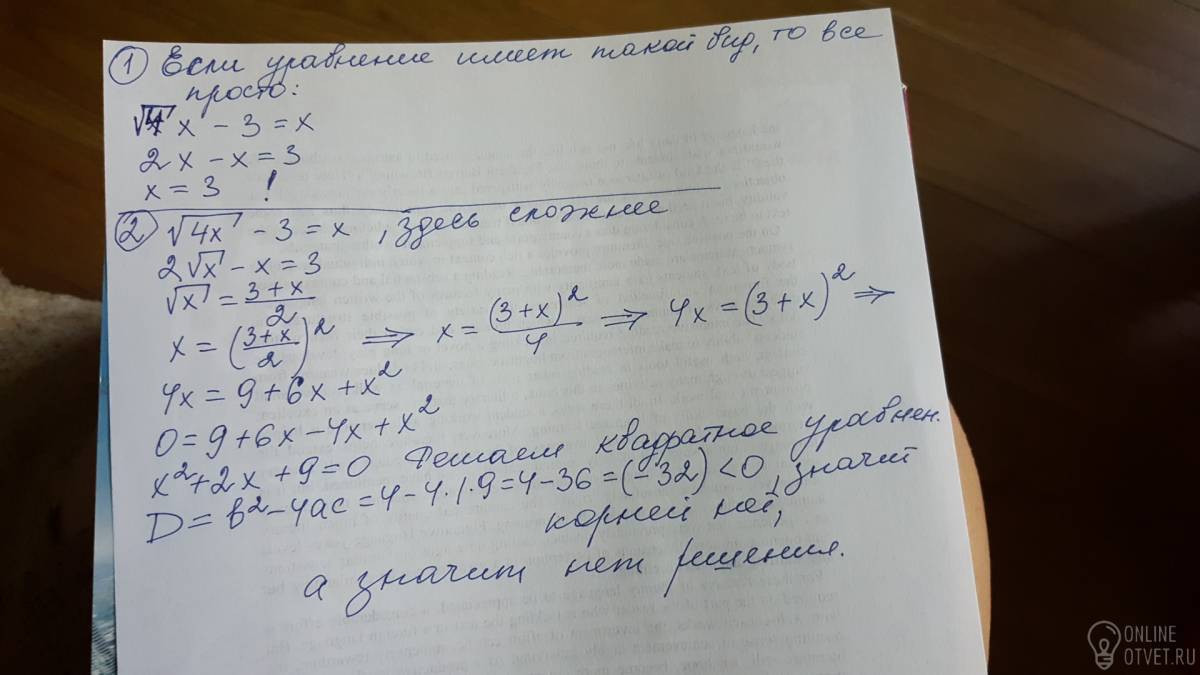 ① Если уравнение имеет такой вид, то все
просто:
√4 x - 3 = x
2x - x = 3
x = 3 !
② √4x - 3 = x , здесь сложнее
2√x - x = 3
√x = (3+x)/2
x = ((3+x)/2)² ⇒ x = (3+x)²/4 ⇒ 4x = (3+x)² ⇒
4x = 9 + 6x + x²
0 = 9 + 6x - 4x + x²
x² + 2x + 9 = 0 Решаем квадратное уравнен.
D = b² - 4ac = 4 - 4·1·9 = 4 - 36 = (-32) < 0, значит
корней нет,
а значит нет решения.
ONLINE
OTVET.RU